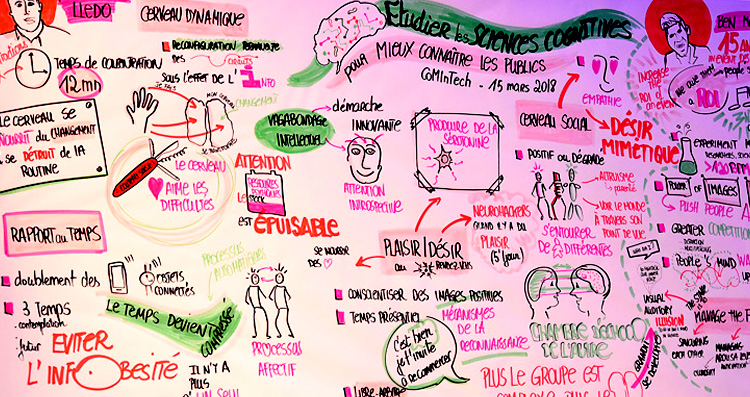 LLEDO
CERVEAU DYNAMIQUE
RECONFIGURATION PERMANENTE
DES CIRCUITS
SOUS L'EFFET DE L'INFO
CHANGEMENT
TEMPS DE CONCENTRATION
12mn
LE CERVEAU SE
NOURRIT DU CHANGEMENT
SE DÉTRUIT DE LA
ROUTINE
LE CERVEAU
AIME LES
DIFFICULTÉS
ATTENTION
LE STOCK
EST ÉPUISABLE
RAPPORT AU TEMPS
doublement des
OBJETS
CONNECTÉS
3 TEMPS
contemplation
futur
EVITER
L'INFOBESITÉ
LE TEMPS DEVIENT
COMPRESSÉ
PROCESSUS
AUTOMATIQUES
PROCESSUS
AFFECTIF
IL N'Y A
PLUS
D'UN SEUL
Etudier les SCIENCES COGNITIVES
pour MIEUX CONNAÎTRE LES PUBLICS
COMINTECH - 15 MARS 2018
VAGABONDAGE
INTELLECTUEL
démarche
INNOVANTE
ATTENTION
INTROSPECTIVE
PRODUIRE DE LA
SÉROTONINE
PLAISIR/DÉSIR
NEUROHACKERS
QUAND IL Y A DU
PLAISIR
(5'/jour)
SE NOURRIR
DES
CONSCIENTISER DES IMAGES POSITIVES
TEMPS PRÉSENTIEL
MÉCANISMES
DE LA
RECONNAISSANCE
c'est bien
je t'invite
à recommencer
LIBRE-ARBITRE
EMPATHIE
CERVEAU SOCIAL
DÉSIR
MIMÉTIQUE
POSITIF OU DÉGRADÉ
ALTRUISME
VOIR LE MONDE
À TRAVERS SON
POINT DE VUE
S'ENTOURER
DE DIFFÉRENTES
CHAMBRE D'ÉCHO
DE L'AUTRE
PLUS LE GROUPE EST
GRANDIT
SE DÉVELOPPE
BEN
15
INCREASE
THE
ROI OF
AN EVENT
ROI
EXPERIMENT
POWER OF IMAGES
PUSH PEOPLE
GREATER COMPETITION
PEOPLE'S MIND
VISUAL
AUDITORY
ILLUSION
MANAGE THE
MANAGING
CURIOSITY